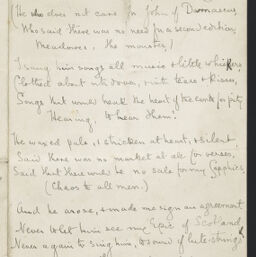 (He who does not care for John of Damascus,
Who said there was no need for a second edition,
the monster)
I sang him songs all music & little whiskers,
Clothed about with down, with tears & kisses,
Songs that would break the heart of the earth for pity
Hearing, to hear them.
He waxed pale, stricken at heart, & silent
Said there was no market at all for verses,
Said that there would be no sale for my Sapphics,
(Chaos to all men.)
And he arose, & made me sign an agreement
Never to let him see my Epic of Scotland,
Never again to sing him, to sound of lute-strings